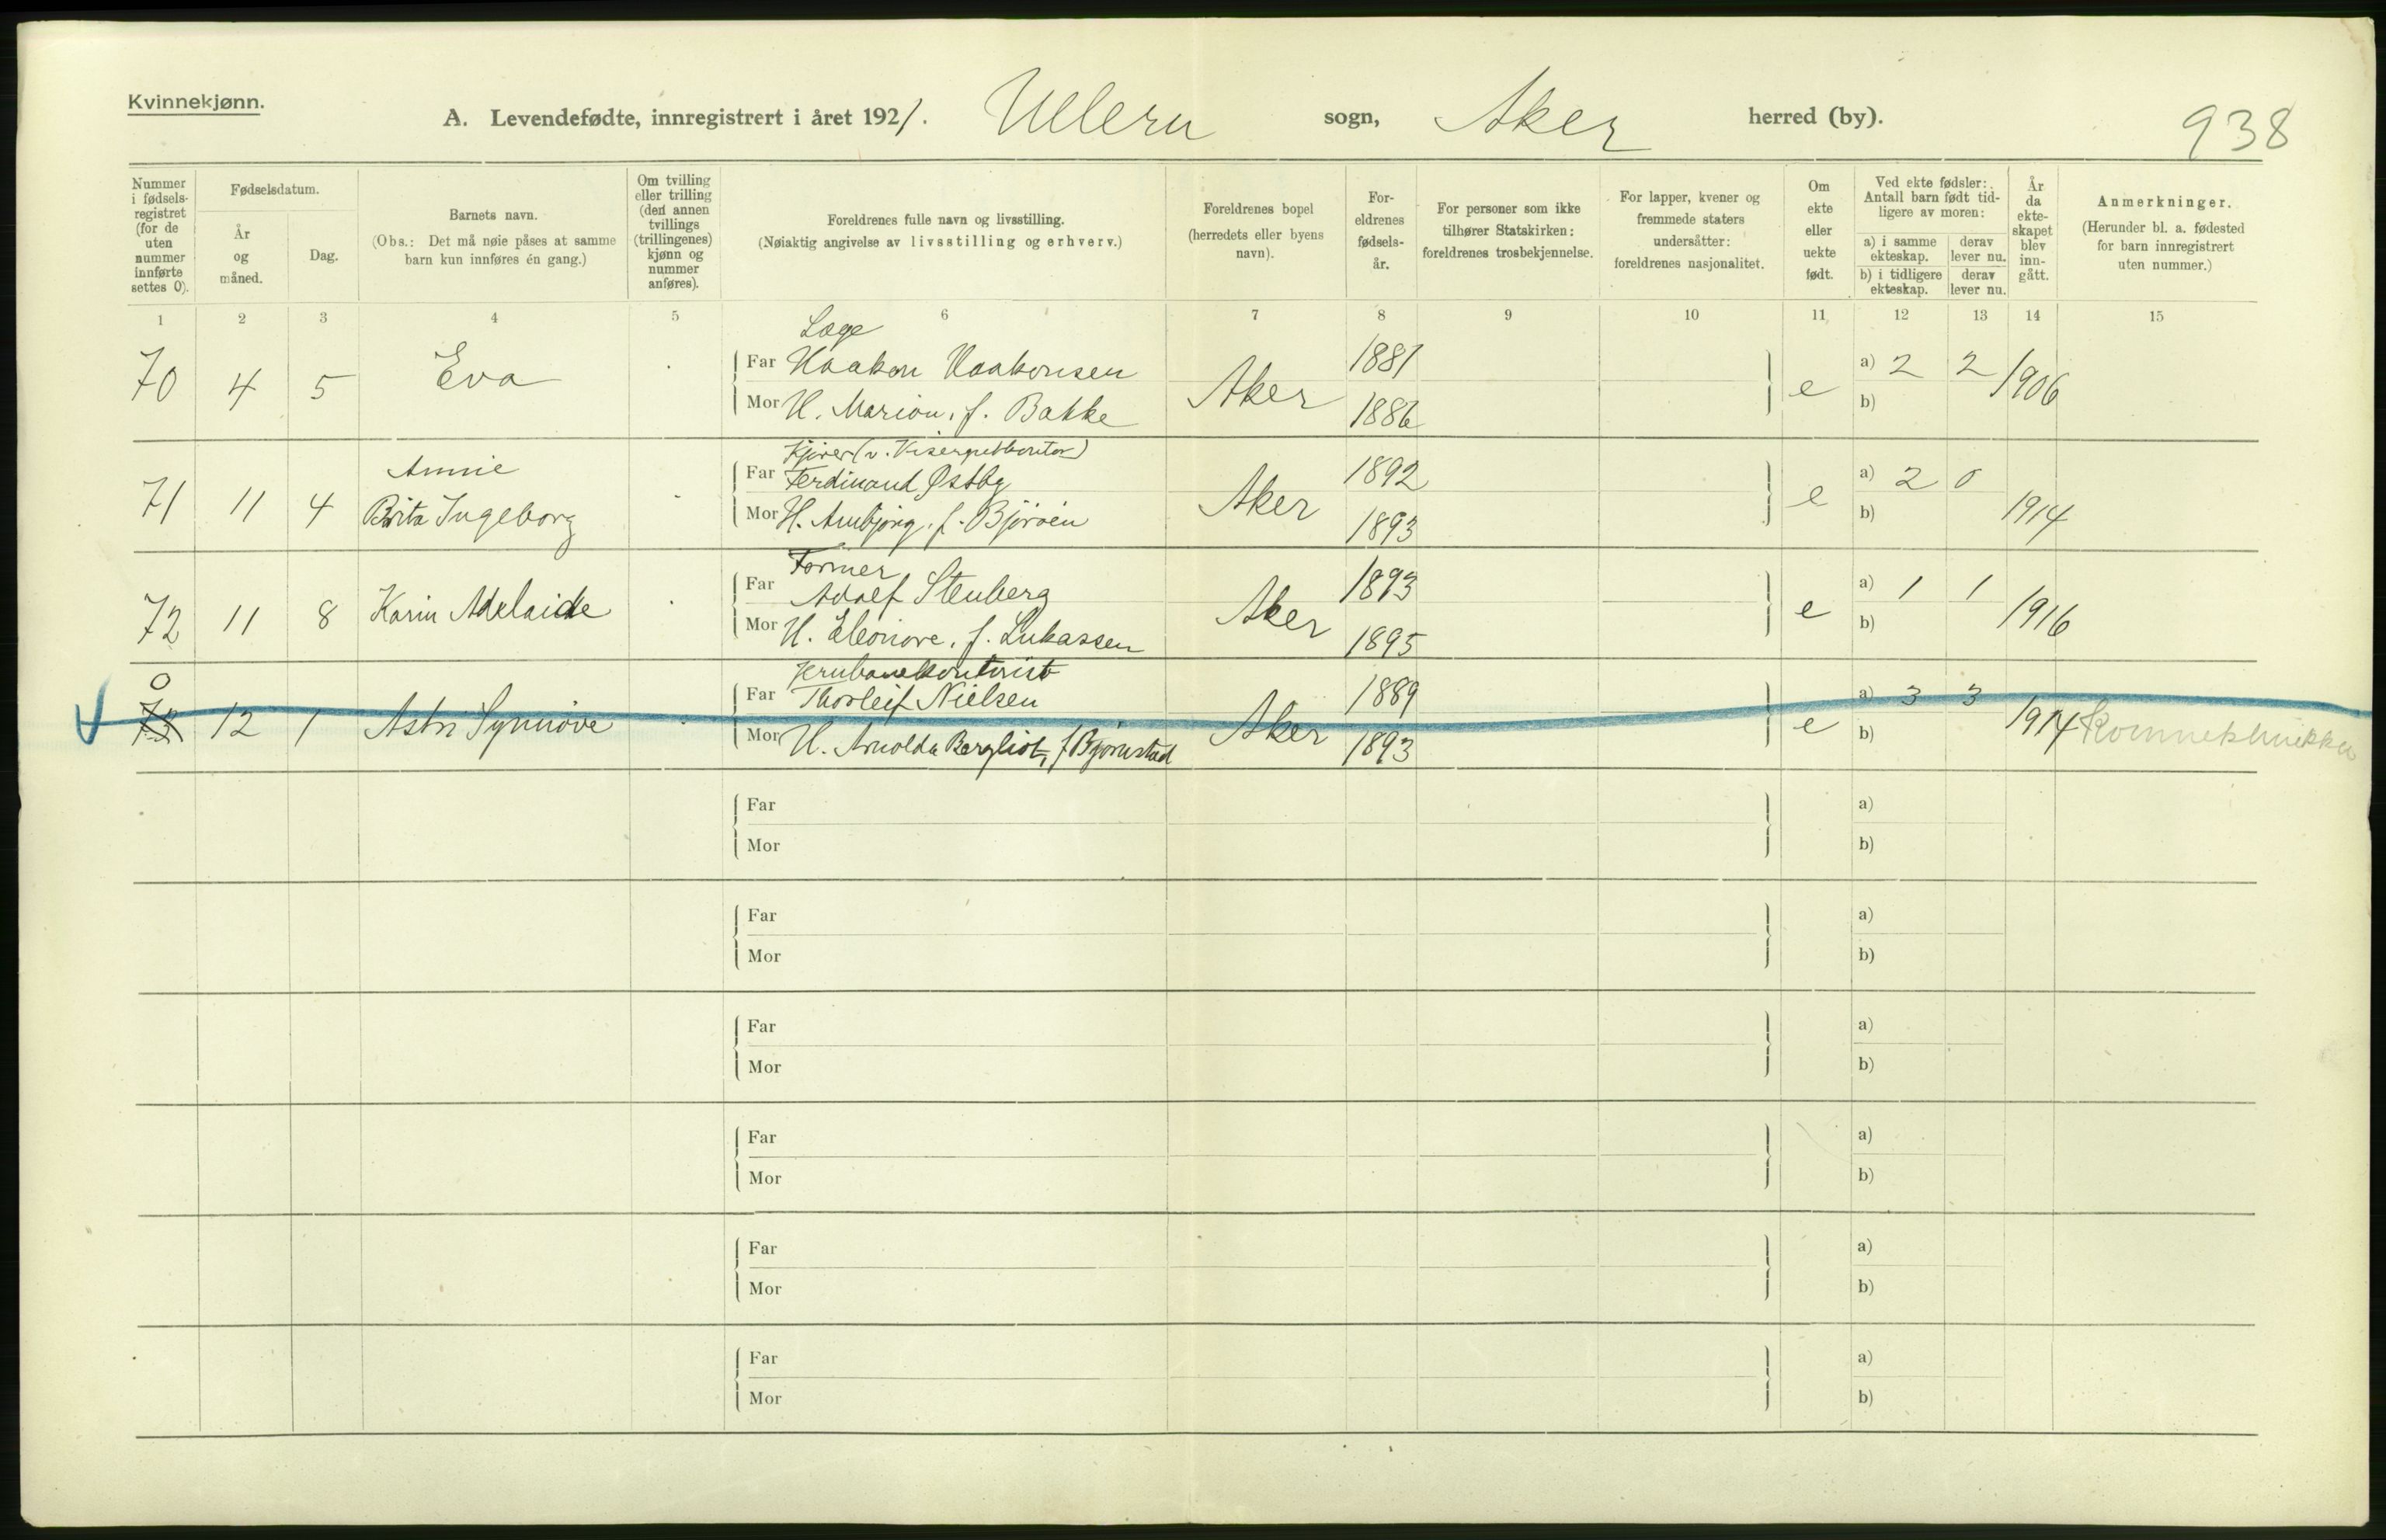 Kvinnekjønn.
A. Levendefødte, innregistrert i året 1921. Ullern sogn, Aker herred (by).
938
Nummer i fødsels-registret (for de uten nummer innførte settes 0).
Fødselsdatum.
År og måned.
Dag.
Barnets navn.
(Obs.: Det må nøie påses at samme barn kun innføres én gang.)
Om tvilling eller trilling (den annen tvillings (trillingenes) kjønn og nummer anføres).
Foreldrenes fulle navn og livsstilling.
(Nøiaktig angivelse av livsstilling og erhverv.)
Foreldrenes bopel (herredets eller byens navn).
For-eldrenes fødsels-år.
For personer som ikke tilhører Statskirken: foreldrenes trosbekjennelse.
For lapper, kvener og fremmede staters undersåtter: foreldrenes nasjonalitet.
Om ekte eller uekte født.
Ved ekte fødsler: Antall barn født tid-ligere av moren:
a) i samme ekteskap.
derav lever nu.
b) i tidligere ekteskap.
derav lever nu.
År da ekte-skapet blev inn-gått.
Anmerkninger.
(Herunder bl. a. fødested for barn innregistrert uten nummer.)
1 2 3 4 5 6 7 8 9 10 11 12 13 14 15
Læge
70 4 5 Eva Far Haakon Haakonsen Aker 1881 e a) 2 2 1906
Mor H. Marion, f. Bakke 1886 b)
Annie
71 11 4 Brita Ingeborg Far Ferdinand Østby Aker 1892 e a) 2 0 1914
Mor H. Arnbjørg, f. 1893 b)
Former
72 11 8 Karin Adelaide Far Adolf Stenberg Aker 1893 e a) 1 1 1916
Mor H. Eleonore, f. Lukassen 1895 b)
0 Jernbanekontorist
73 12 1 Astri Synnöve Far Thorleif Nielsen Aker 1889 e a) 3 3 1914
Mor H. Arnolda Bergliot, f Bjørnstad 1893 b)
Far a)
Mor b)
Far a)
Mor b)
Far a)
Mor b)
Far a)
Mor b)
Far a)
Mor b)
Far a)
Mor b)